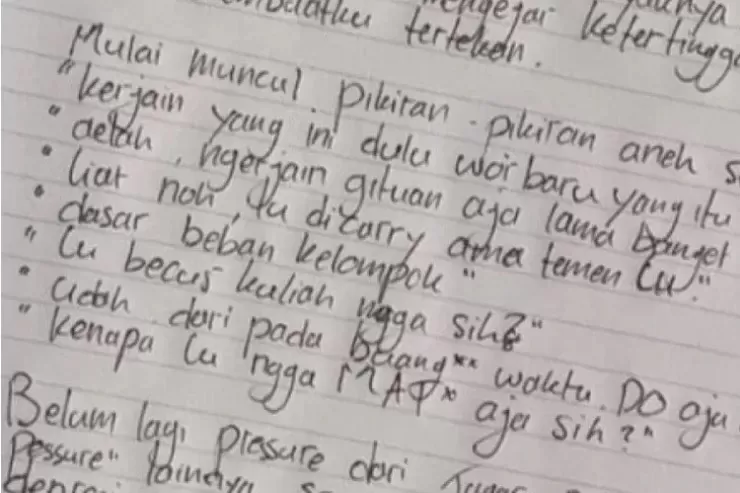 mengejar ketertingga
tertekan.
Mulai muncul pikiran-pikiran aneh s
"kerjain yang ini dulu wor baru yang itu
"aelah, ngerjain gituan aja lama banget
"liat noh, lu dicarry ama temen lu."
"dasar beban kelompok"
"lu becus kuliah ngga sih?"
"udah dari pada buang** waktu. DO aja
"kenapa lu ngga MAT* aja sih?"
Belum lagi pressure dari
Pressure" lainnya